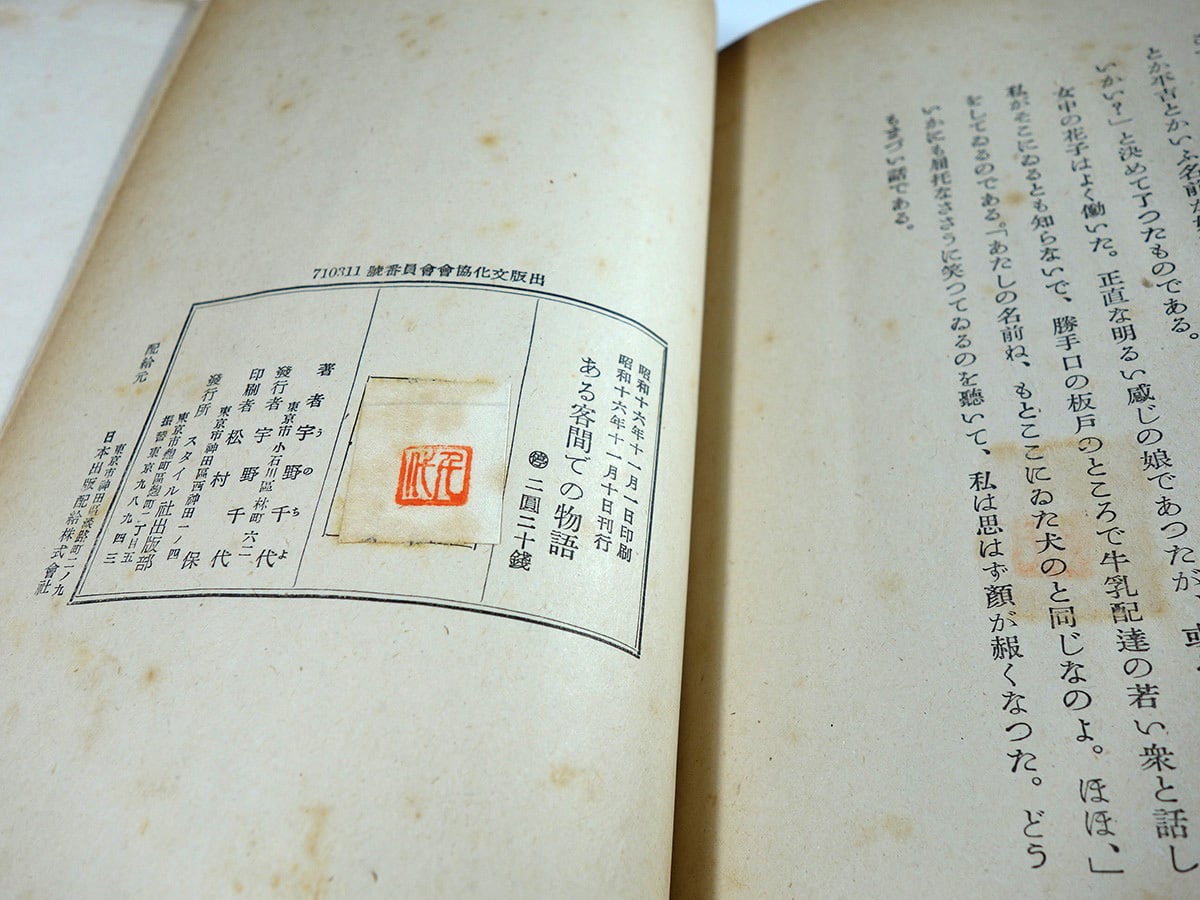 とか平吉とかいふ名前だ
いかい?」と決めて了つたものである。
女中の花子はよく働いた。正直な明るい感じの娘であつたが、或
私がそこにゐるとも知らないで、勝手口の板戸のところで牛乳配達の若い衆と話し
をしてゐるのである。「あたしの名前ね、もとここにゐた犬のと同じなのよ。ほほ、」
いかにも屈托なささうに笑つてゐるのを聽いて、私は思はず顏が赧くなつた。どう
もまづい話である。
出版文化協會會員番號 710311
昭和十六年十一月一日印刷
昭和十六年十一月十日刊行
ある客間での物語
㊡ 二圓二十錢
千代
著者 宇野千代
うのちよ
東京市小石川區林町六二
發行者 宇野千代
印刷者 松村保
東京市神田區西神田一ノ四
發行所 スタイル社出版部
東京市麹町區麹町二丁目五
振替東京九八九四三
配給元
東京市神田區淡路町二ノ九
日本出版配給株式會社